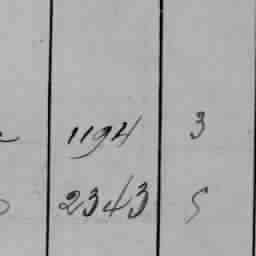 1194 3
2343 5